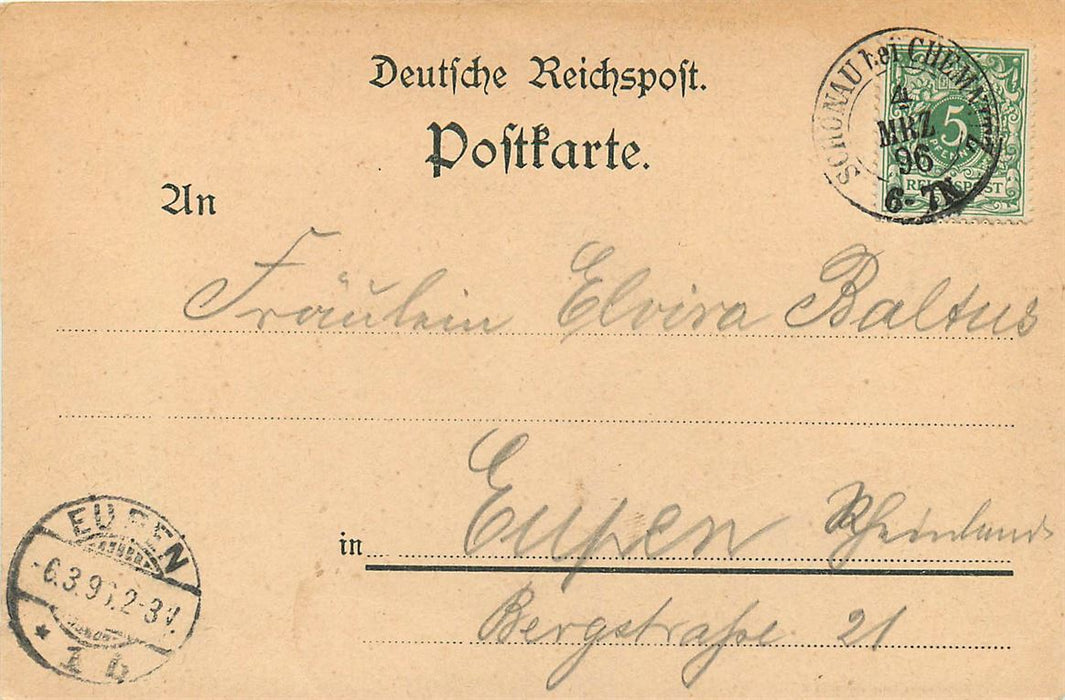 Deutsche Reichspost.
Postkarte.
SCHÖNAU bei CHEMNITZ
4
MRZ
96
6-7N
5
PFENNIG
REICHSPOST
An
Fräulein Elvira Baltus
in Eupen Rheinland
Bergstraße 21
EUPEN
6.3.96.2-3N.
* 1 b